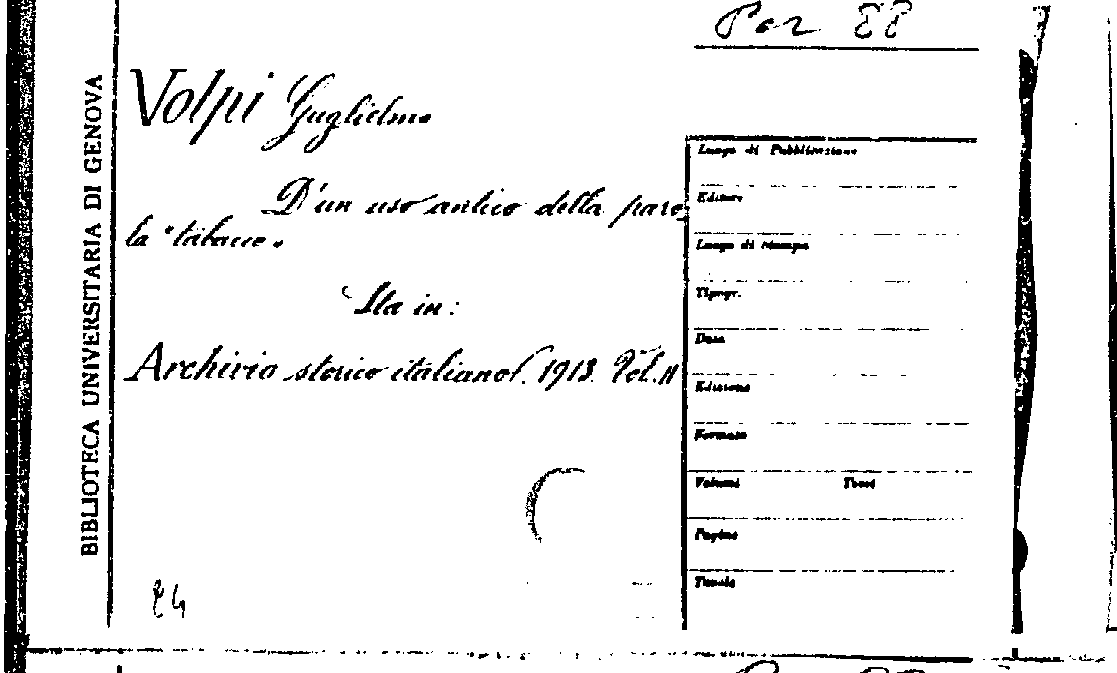 Per 88
BIBLIOTECA UNIVERSITARIA DI GENOVA
Volpi Guglielmo
D'un uso antico della paro
la "tabacco"
Sta in:
Archivio storico italiano. 1913. Vol. II
Luogo di Pubblicazione
Editore
Luogo di stampa
Tipogr.
Data
Edizione
Formato
Volumi
Tomi
Pagine
Tavole
24